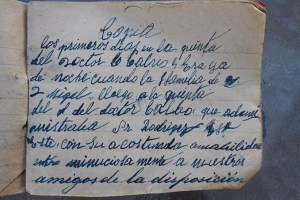 Copia
los primeros dias en la quinta
del doctor C Calvo y Era ya
de noche cuando la familia de
J Nigel, llego a la quinta
del d del doctor Calvo, que admi
nistraba Sr
este, con su acostumbrada amabilidad
entero minuciosa mente a nuestros
amigos de la disposición